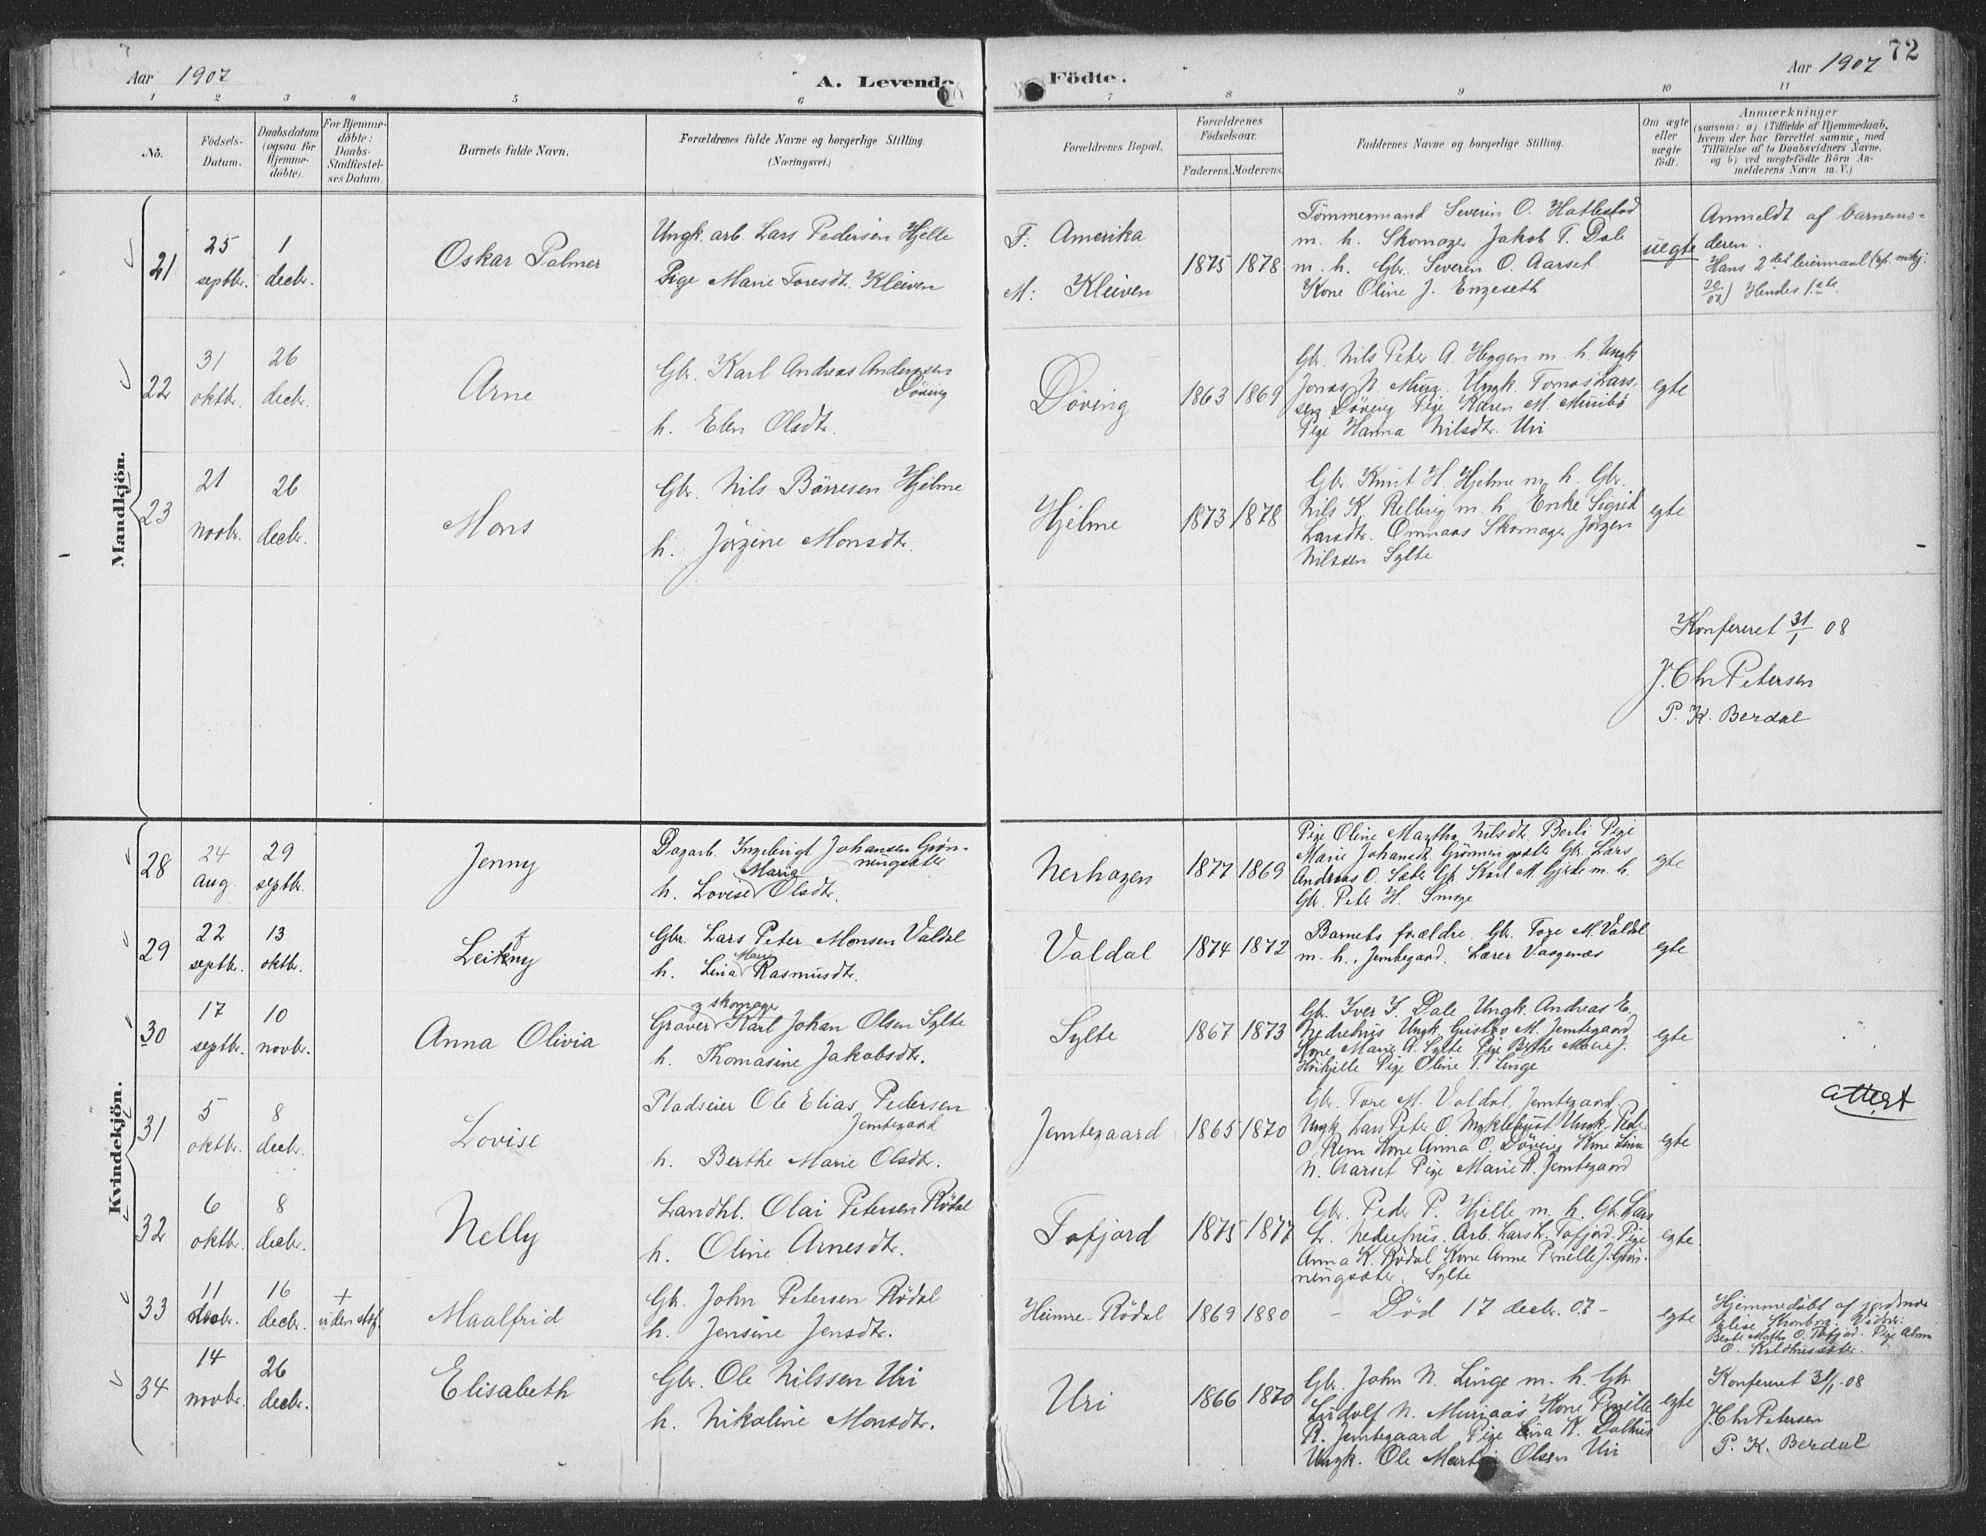 Aar 1907
A. Levende Födte.
Aar 1907
72
1 2 3 4 5 6 7 8 9 10 11
No.
Födsels-Datum.
Daabsdatum (ogsaa för Hjemmedöbte).
For Hjemmedöbte: Daabs-Stadfæstelses Datum.
Barnets fulde Navn.
Forældrenes fulde Navne og borgerlige Stilling. (Næringsvei.)
Forældrenes Bopæl.
Forældrenes Födselsaar.
Faderens. Moderens.
Faddernes Navne og borgerlige Stilling.
Om ægte eller uægte födt.
Anmærkninger
(saasom: a) i Tilfælde af Hjemmedaab,
hvem der har forrettet samme, med
Tilföielse af to Daabsvidners Navne,
og b) ved uægtefödte Börn An-
melderens Navn m. V.)
Mandkjön.
21
25 septbr.
1 decbr.
Oskar Palmer
Ungk. arb. Lars Pedersen Hjelle
Pige Marie Toresdt. Kleiven
F: Amerika
M: Kleiven
1875 1878
Tömmermand Severin O. Hatlestad
m. h. Skomager Jakob T. Dale
m. h. Gbr. Severin O. Aarset
Kone Oline J. Engeseth
uegte
Anmeldt af barnemo-
deren.
Hans 2det leiermaal
20/07) Hendes 1ste.
22
31 oktbr.
26 decbr.
Arne
Gbr. Karl Andreas Andersen
Döving
h. Elen Olsdtr.
Döving
1863 1869
Gbr. Nils Peter A. Heggen m. h. Ungk
Jonas N. Muri. Ungk. Tomas Lars.
sen Döving Pige Karen M. Muribö
Pige Hanna Nilsdtr. Uri
egte
23
21 novbr.
26 decbr.
Mons
Gbr. Nils Börresen Hjelme
h. Jörgine Monsdtr.
Hjelme
1873 1878
Gbr. Knut H. Hjelme m. h. Gbr.
Nils K. Relling m. h. Enke Sigrid
Larsdtr. Omnaas Skomager Jörgen
Nilssen Sylte
egte
Konfereret 31/1 08
J. Chr Petersen
P. K. Berdal
Kvindekjön.
28
24 aug.
29 septbr.
Jenny
Dagarb. Ingebrigt Johansen Grön-
ningsæter
Maria
h. Lovise Olsdtr.
Nerhagen
1877 1869
Pige Oline Martha Nilsdtr. Berli Pige
Marie Johansdt. Grönningsæter Gbr. Lars
Andreas O. Sæter Gbr. Karl M. Gjerde m. h.
Gbr. Peter H. Smoge
egte
29
22 septbr.
13 oktbr.
Gbr. Lars Peter Monsen Valdal
Marie
h. Lina Rasmusdtr.
Valdal
1874 1872
Barnets forældre. Gbr. Tore M. Valdal
m. h., Jemtegaard. Lærer Vaagenæs
egte
30
17 septbr.
10 novbr.
Anna Olivia
g skomager
Graver Karl Johan Olsen Sylte
h. Thomasine Jakobsdtr.
Sylte
1867 1873
Gbr. Iver I. Dale Ungk. Andreas E.
Nedrehus Ungk. Gustav M. Jemtegaard
Kone Marie A. Sylte Pige Berthe Marie J.
Pige Oline P. Linge
egte
31
5 oktbr.
8 decbr.
Lovise
Pladseier Ole Elias Pedersen
Jemtegaard
h. Berthe Marie Olsdtr.
Jemtegaard
1865 1870
Gbr. Tore M. Valdal, Jemtegaard,
Ungk. Lars Peter O. Myklebust Ungk. Peder
O. Rem Kone Anna O. Döving Kone Lina
N. Aarset Pige Marie R. Jemtegaard
egte
attest
32
6 oktbr.
8 decbr.
Nelly
Landhl. Olai Petersen Rödal
h. Oline Arnesdtr.
Tafjord
1875 1877
Gbr. Peder P. Hjelle m. h. Gbr. Lars
L. Nedrehus. Arb. Lars L. Tafjord. Pige
Anna K. Rödal Kone Anne Pernelle J. Grön-
ningsæter, Sylte
egte
33
11 decbr.
16 decbr.
+ uden stf.
Maalfrid
Gbr. John Petersen Rödal
h. Jensine Jensdtr.
Heimre-Rödal
1869 1880
- Död 17 decbr. 07 -
egte
Hjemmedöbt af jordmor
Elise Vidner:
34
14 novbr.
26 decbr.
Elisabeth
Gbr. Ole Nilssen Uri
h. Nikoline Monsdtr.
Uri
1866 1870
Gbr. John N. Linge m. h. Gbr.
Ludolf N. Muriaas Kone Pernille
R. Jemtegaard Pige Lina K. Dalhus
Ungk. Ole Martin Olsen Uri
egte
Konfereret 31/1-08
J. Chr Petersen
P. K. Berdal